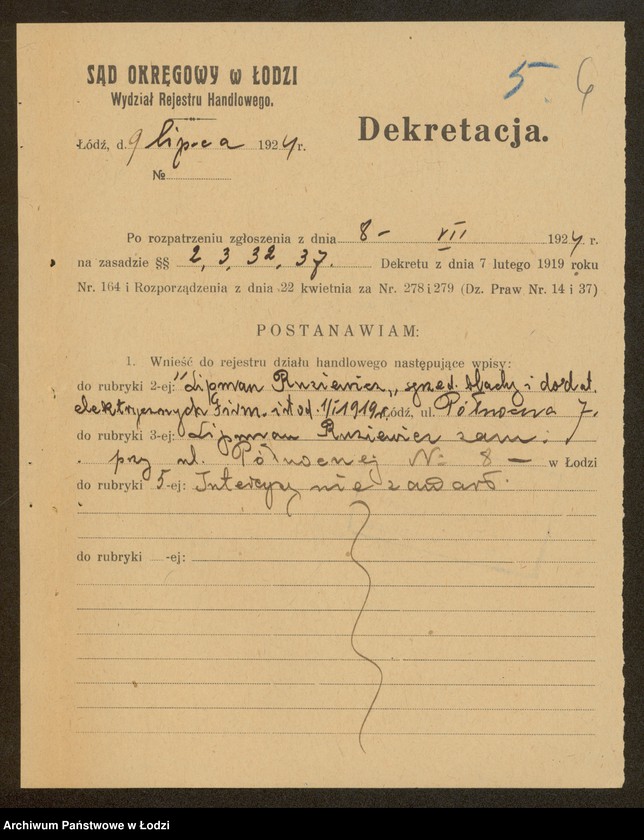 5. 6
SĄD OKRĘGOWY w ŁODZI
Wydział Rejestru Handlowego.
Dekretacja.
Łódź, d. 9 lipca 1924 r.
№
Po rozpatrzeniu zgłoszenia z dnia 8 – VII 1924 r.
na zasadzie §§ 2, 3, 32, 37. Dekretu z dnia 7 lutego 1919 roku
Nr. 164 i Rozporządzenia z dnia 22 kwietnia za Nr. 278 i 279 (Dz. Praw Nr. 14 i 37)
POSTANAWIAM:
1. Wnieść do rejestru działu handlowego następujące wpisy:
do rubryki 2-ej: "Lipman Ruziewicz„ sprzed. blachy i dodat.
elektrycznych od 1/I 1919 r. Łódź, ul. Północna 7.
do rubryki 3-ej: Lipman Ruziewicz zam.
przy ul. Północnej № 8 — w Łodzi
do rubryki 5-ej: Intercyzy nie zawarł.
do rubryki -ej:
Archiwum Państwowe w Łodzi